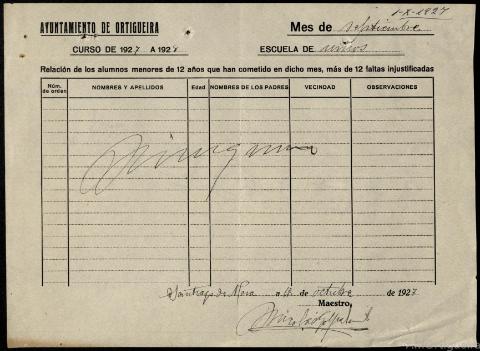 1-X-1927
AYUNTAMIENTO DE ORTIGUEIRA
Mes de septiembre
CURSO DE 1927 A 1928
ESCUELA DE niños
Relación de los alumnos menores de 12 años que han cometido en dicho mes, más de 12 faltas injustificadas
Núm. de orden NOMBRES Y APELLIDOS Edad NOMBRES DE LOS PADRES VECINDAD OBSERVACIONES
Ninguno
Santiago de Mera a de octubre de 1927
Maestro,